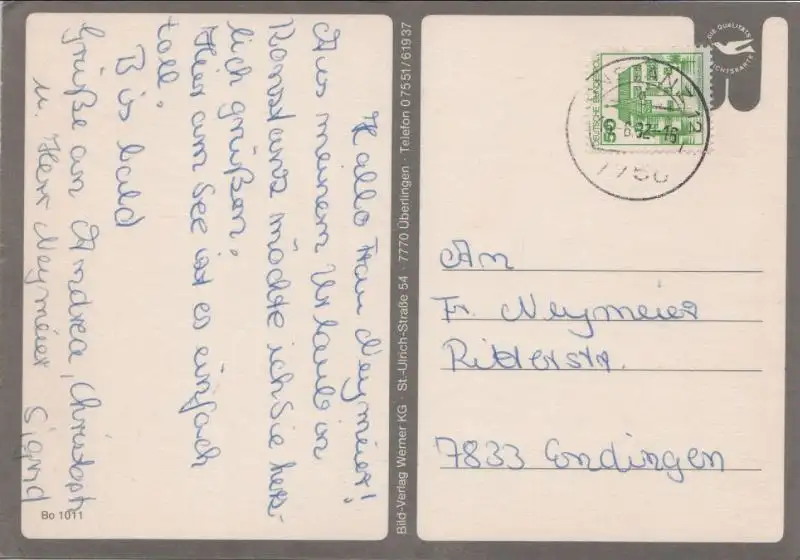 Hallo Frau Neymeier!
Aus meinem Urlaub in
Konstanz möchte ich Sie herz-
lich grüßen.
Hier am See ist es einfach
toll.
Bis bald
Grüße an Andrea, Christoph
u. Herr Neymeier Sigrid
Bo 1011
Bild-Verlag Werner KG · St.-Ulrich-Straße 54 · 7770 Überlingen · Telefon 0 75 51/6 19 37
DIE QUALITÄTS
ICHTSKARTE
DEUTSCHE BUNDESPOST
50
82-18
7750
An
Fr. Neymeier
Ritterstr.
7833 Endingen